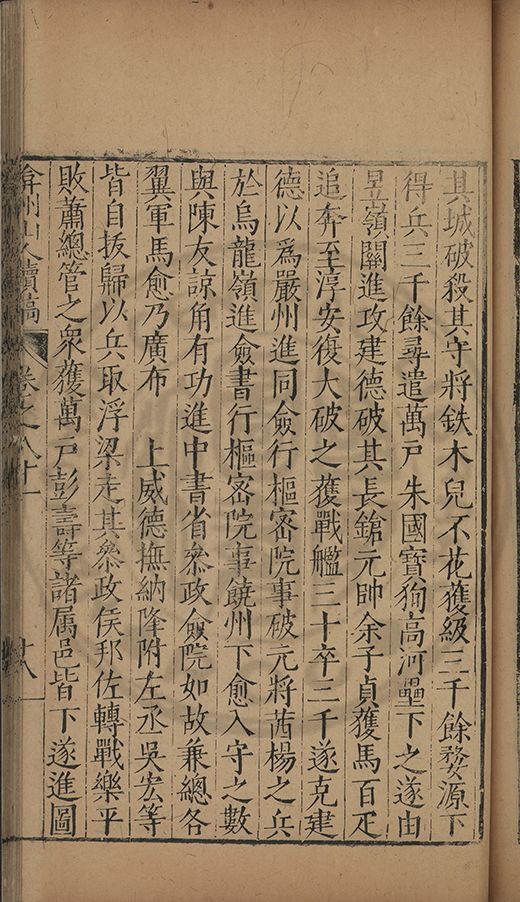 其城破殺其守將鉄木兒不花獲級三千餘婺源下
得兵三千餘尋遣萬戶朱國寶狥高河壘下之遂由
昱嶺關進攻建德破其長鎗元帥余子貞獲馬百疋
追奔至淳安復大破之獲戰艦三十卒三千遂克建
德以爲嚴州進同僉行樞密院事破元將苗楊之兵
於烏龍嶺進僉書行樞密院事饒州下愈入守之數
與陳友諒角有功進中書省叅政僉院如故兼總各
翼軍馬愈乃廣布　上威德撫納隆附左丞吳宏等
皆自拔歸以兵取浮梁走其叅政侯邦佐轉戰樂平
敗蕭總管之衆獲萬戶彭壽等諸属邑皆下遂進圖
弇州山人續稿 卷之八十一 廿八